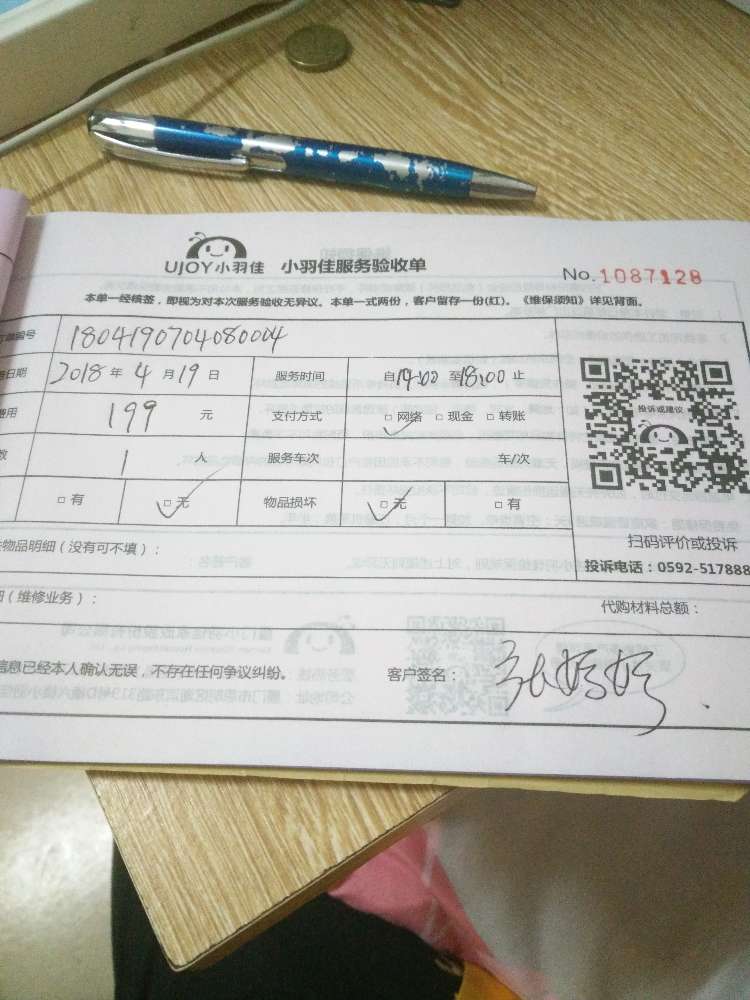 UJOY小羽佳 小羽佳服务验收单
No.1087128
本单一经续签,即视为对本次服务验收无异议。本单一式两份,客户留存一份(红)。《维保须知》详见背面。
单编号 1804190704080004
日期 2018年4月19日 服务时间 自14:00至18:00止
费用 199 元 支付方式 □网络 □现金 □转账
数 1 人 服务车次 车/次
□有 □无 物品损坏 □无 □有
投诉或建议
扫码评价或投诉
投诉电话:0592-517888
物品明细(没有可不填):
(维修业务): 代购材料总额:
信息已经本人确认无误,不存在任何争议纠纷。 客户签名: